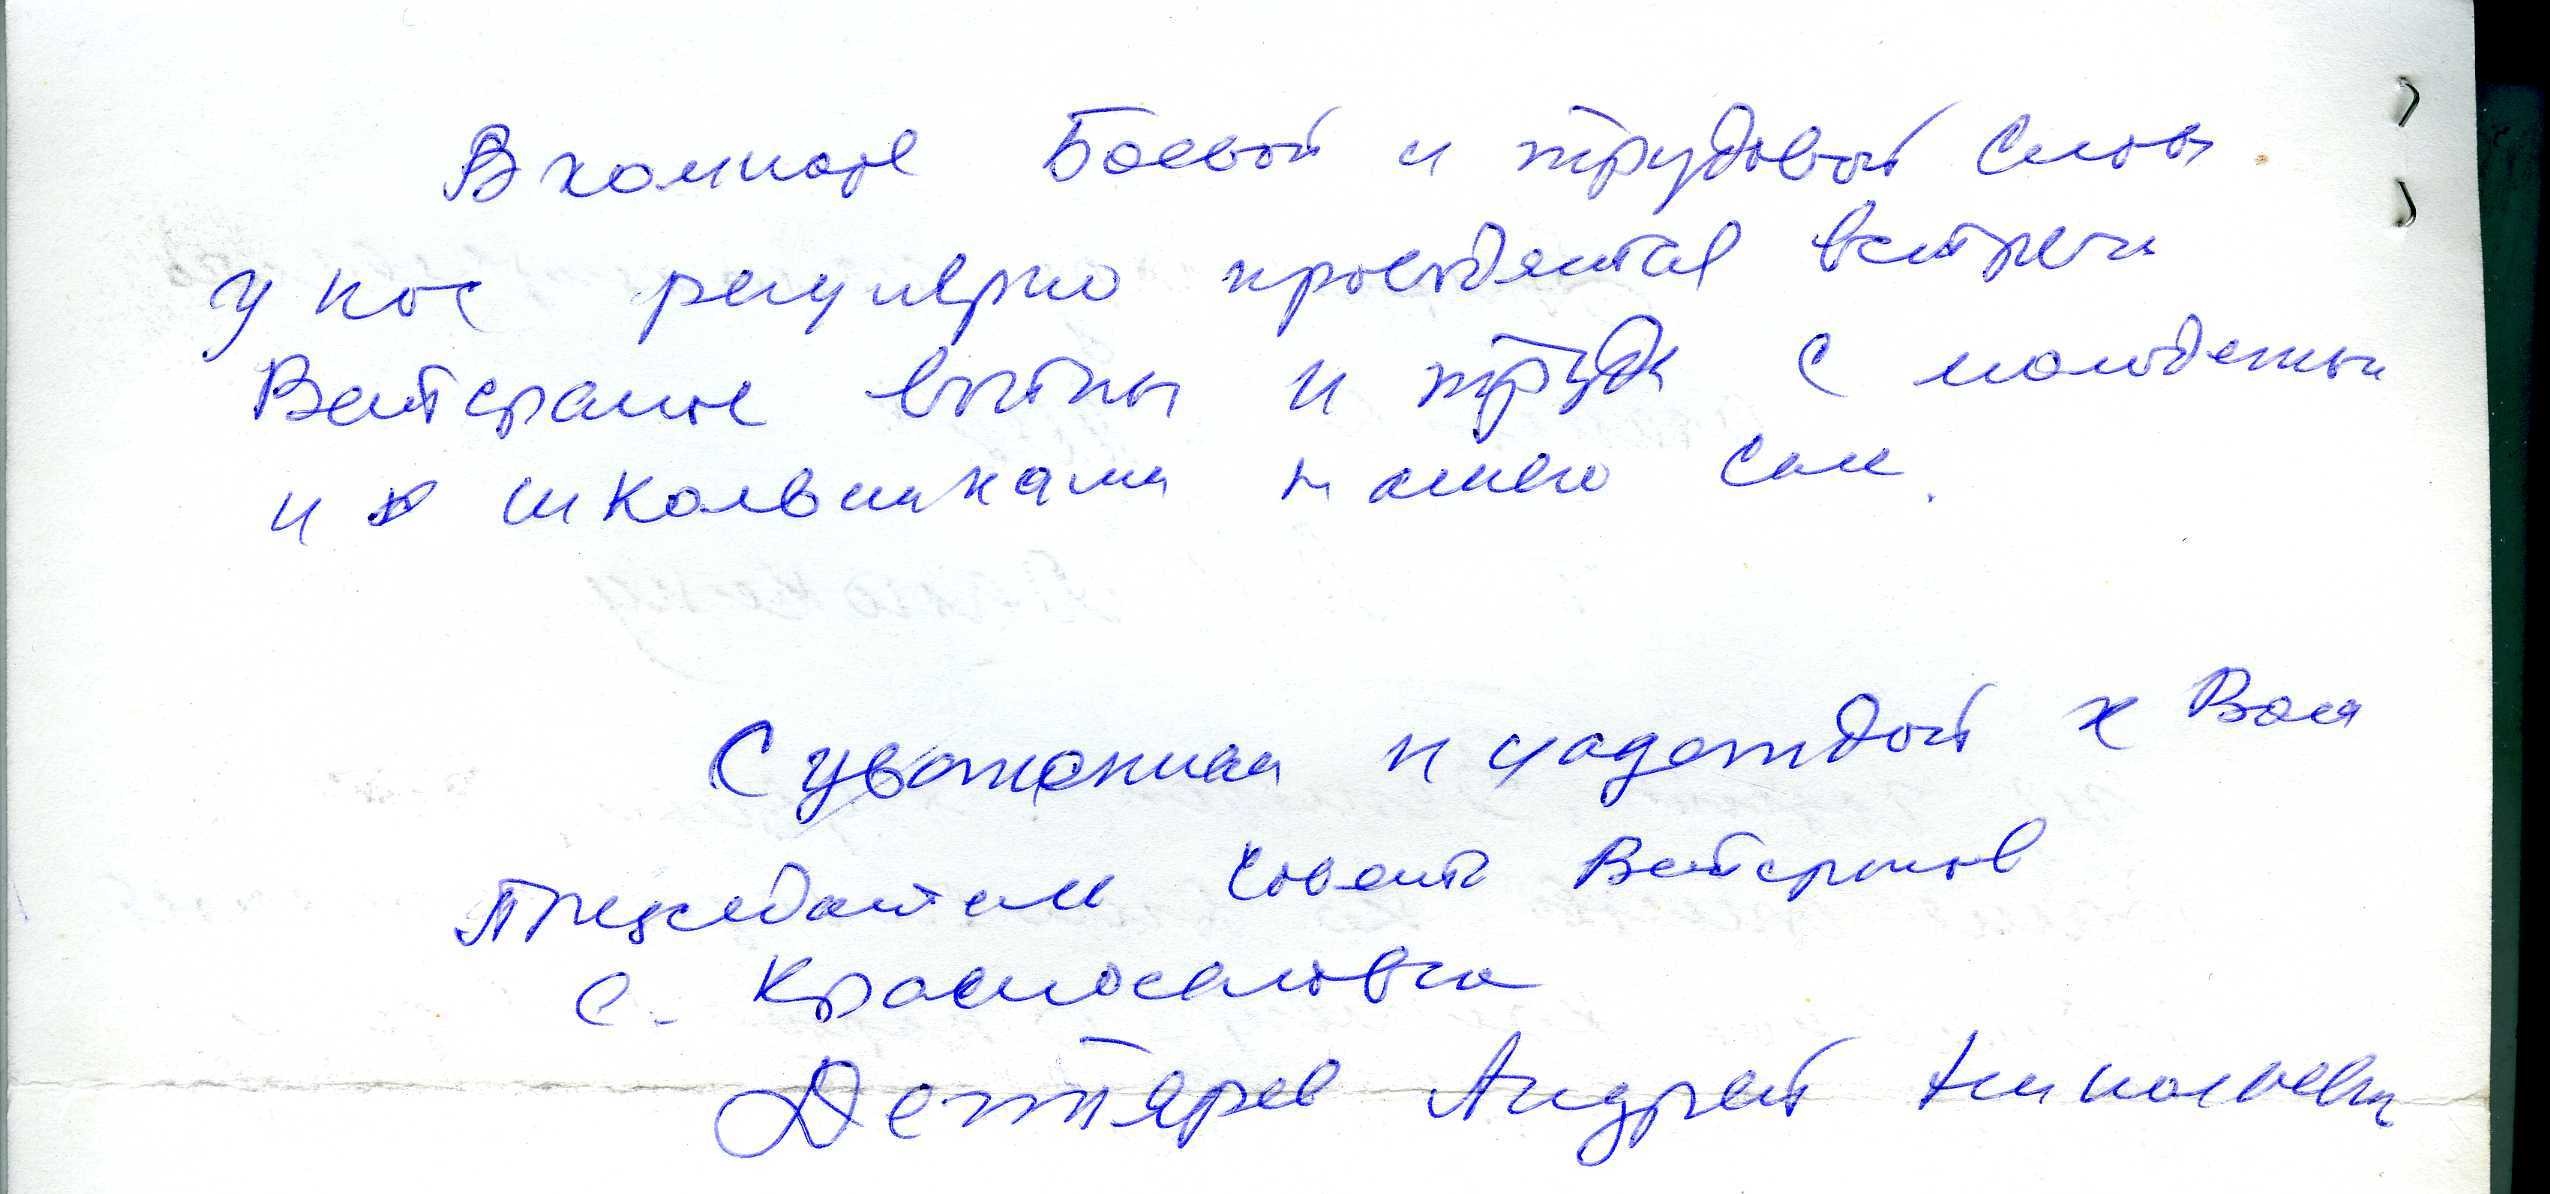 В комнате Боевой и трудовой Славы
у нас регулярно проводятся встречи
Ветеранов войны и труда с молодежью
и школьниками нашего села.
С уважением и надеждой к Вам
Председатель Совета Ветеранов
с. Красноселовка
Дегтярев Андрей Николаевич